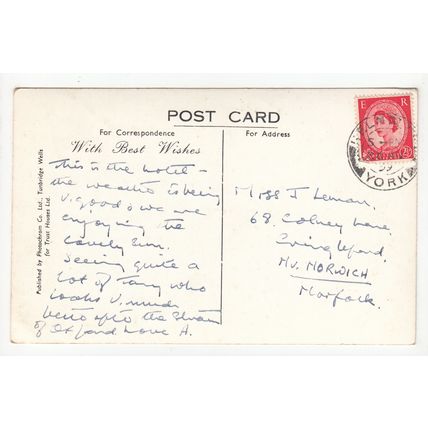 POST CARD
For Correspondence
For Address
With Best Wishes
This is the hotel -
the weather is being
v. good & we are
enjoying the
lovely sun.
Seeing quite a
lot of Tony who
looks v. much
better after the Strain
of Oxford Love A.
Miss J Leman,
68. Colney Lane,
Cringleford,
Nr. NORWICH
Norfolk.
Published by Photochrom Co. Ltd., Tunbridge Wells
for Trust Houses Ltd.
E R
2½
YORK